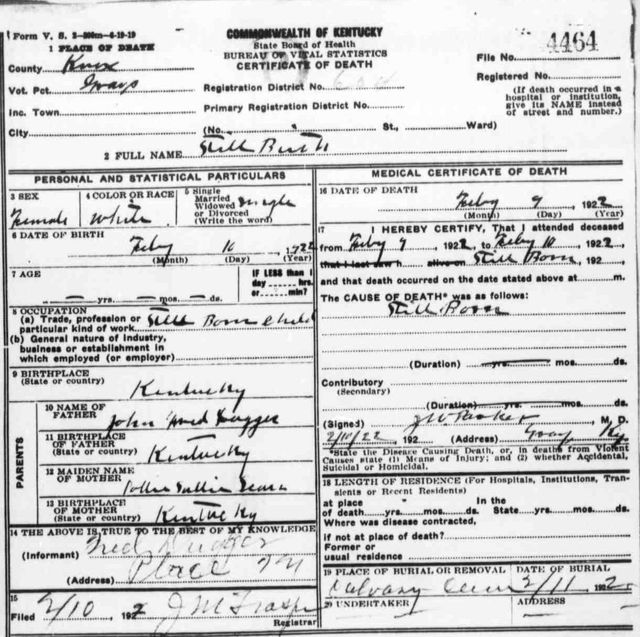 Form V. S. 2-200m-6-19-19
COMMONWEALTH OF KENTUCKY
State Board of Health
BUREAU OF VITAL STATISTICS
CERTIFICATE OF DEATH
4464
1 PLACE OF DEATH
County Knox
File No.
Vot. Pct. Grays
Registration District No.
Registered No.
Inc. Town
Primary Registration District No.
(If death occurred in a hospital or institution, give its NAME instead of street and number.)
City (No. St., Ward)
2 FULL NAME Still Birth
PERSONAL AND STATISTICAL PARTICULARS
3 SEX
Female
4 COLOR OR RACE
White
5 Single
Married
Widowed
or Divorced
(Write the word)
single
6 DATE OF BIRTH
Feby 10 1922
(Month) (Day) (Year)
7 AGE
yrs. mos. ds.
IF LESS than 1
day hrs.
or min.?
8 OCCUPATION
(a) Trade, profession or
particular kind of work Still Born child
(b) General nature of industry,
business or establishment in
which employed (or employer)
9 BIRTHPLACE
(State or country)
Kentucky
PARENTS
10 NAME OF
FATHER
John Fred
11 BIRTHPLACE
OF FATHER
(State or country)
Kentucky
12 MAIDEN NAME
OF MOTHER
Sallie
13 BIRTHPLACE
OF MOTHER
(State or country)
Kentucky
14 THE ABOVE IS TRUE TO THE BEST OF MY KNOWLEDGE
(Informant) Fred
(Address) Place
15
Filed 2/10 1922
Registrar
MEDICAL CERTIFICATE OF DEATH
16 DATE OF DEATH
Feby 9 1922
(Month) (Day) (Year)
17 I HEREBY CERTIFY, That I attended deceased
from Feby 9 1922, to Feby 10 1922,
that I last saw h alive on Still Born, 192
and that death occurred on the date stated above at m.
The CAUSE OF DEATH* was as follows:
Still Born
(Duration) yrs. mos. ds.
Contributory
(Secondary)
(Duration) yrs. mos. ds.
(Signed) J W Parker M. D.
2/10/22, 192 (Address) Gray Ky
*State the Disease Causing Death, or, in deaths from Violent
Causes state (1) Means of Injury; and (2) whether Accidental,
Suicidal or Homicidal.
18 LENGTH OF RESIDENCE (For Hospitals, Institutions, Transients or Recent Residents)
at place In the
of death yrs. mos. ds. State yrs. mos. ds.
Where was disease contracted,
if not at place of death?
Former or
usual residence
19 PLACE OF BURIAL OR REMOVAL
DATE OF BURIAL
Calvary Cem 2/11 192
20 UNDERTAKER
ADDRESS